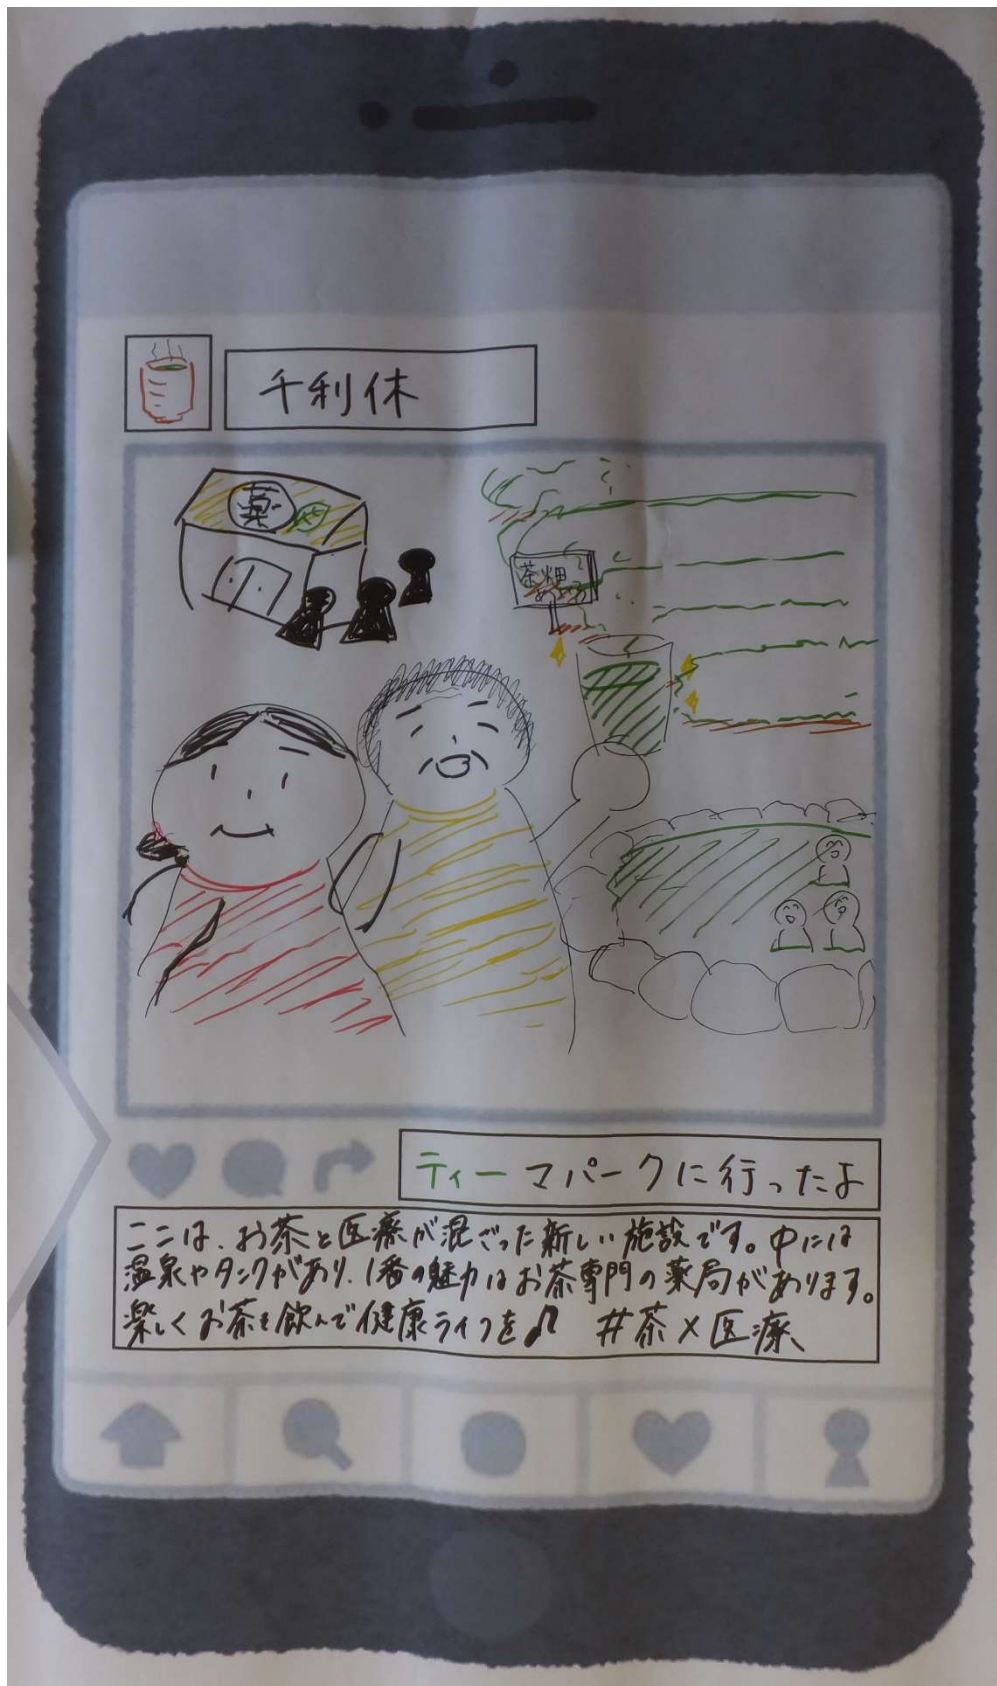 千利休
薬
茶畑
ティーマパークに行ったよ
ここは、お茶と医療が混ざった新しい施設です。中には
温泉やタンクがあり、1番の魅力はお茶専門の薬局があります。
楽しくお茶を飲んで健康ライフを♫ #茶×医療